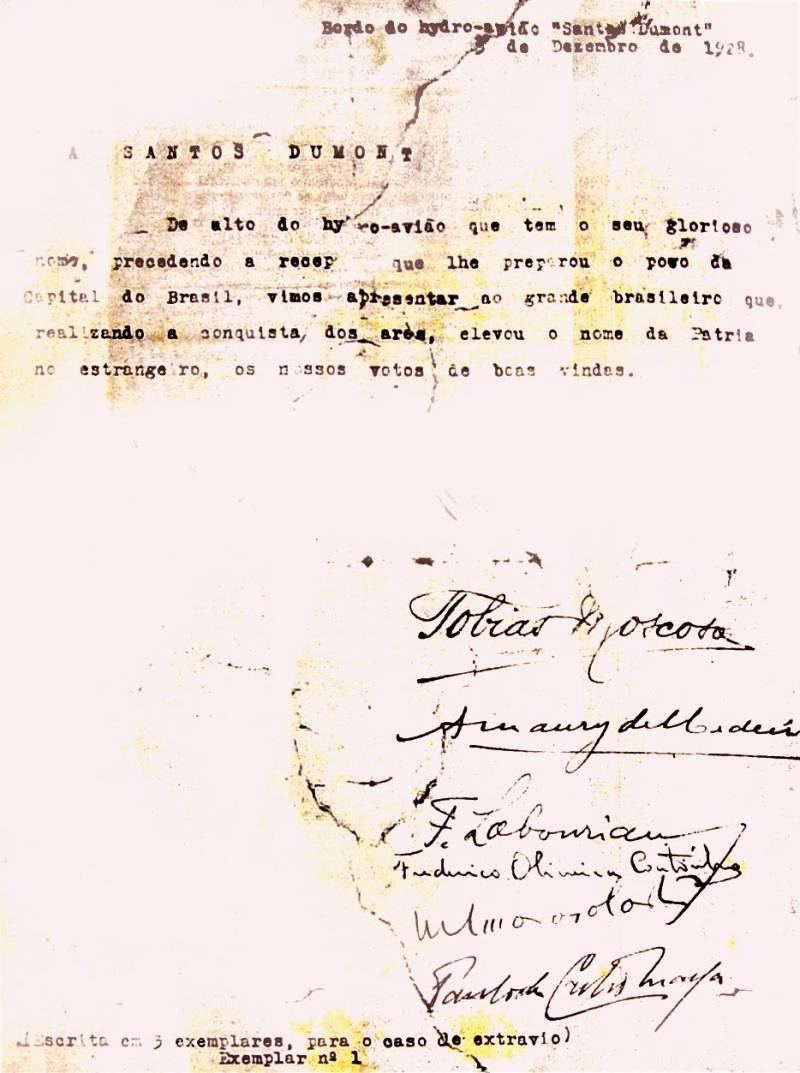 Bordo do hydro-avião "Santos Dumont"
3 de Dezembro de 1928.
A SANTOS DUMONT
De alto do hydro-avião que tem o seu glorioso
nome, precedendo a recep que lhe preparou o povo da
Capital do Brasil, vimos apresentar ao grande brasileiro que,
realizando a conquista dos ares, elevou o nome da Patria
no estrangeiro, os nossos votos de boas vindas.
Tobias Moscoso
Amaury de Medeir
F. Labouriau
Frederico Oliveira Coutinho
Paulo de Castro Maya
(Escrita em 3 exemplares, para o caso de extravio)
Exemplar nº 1